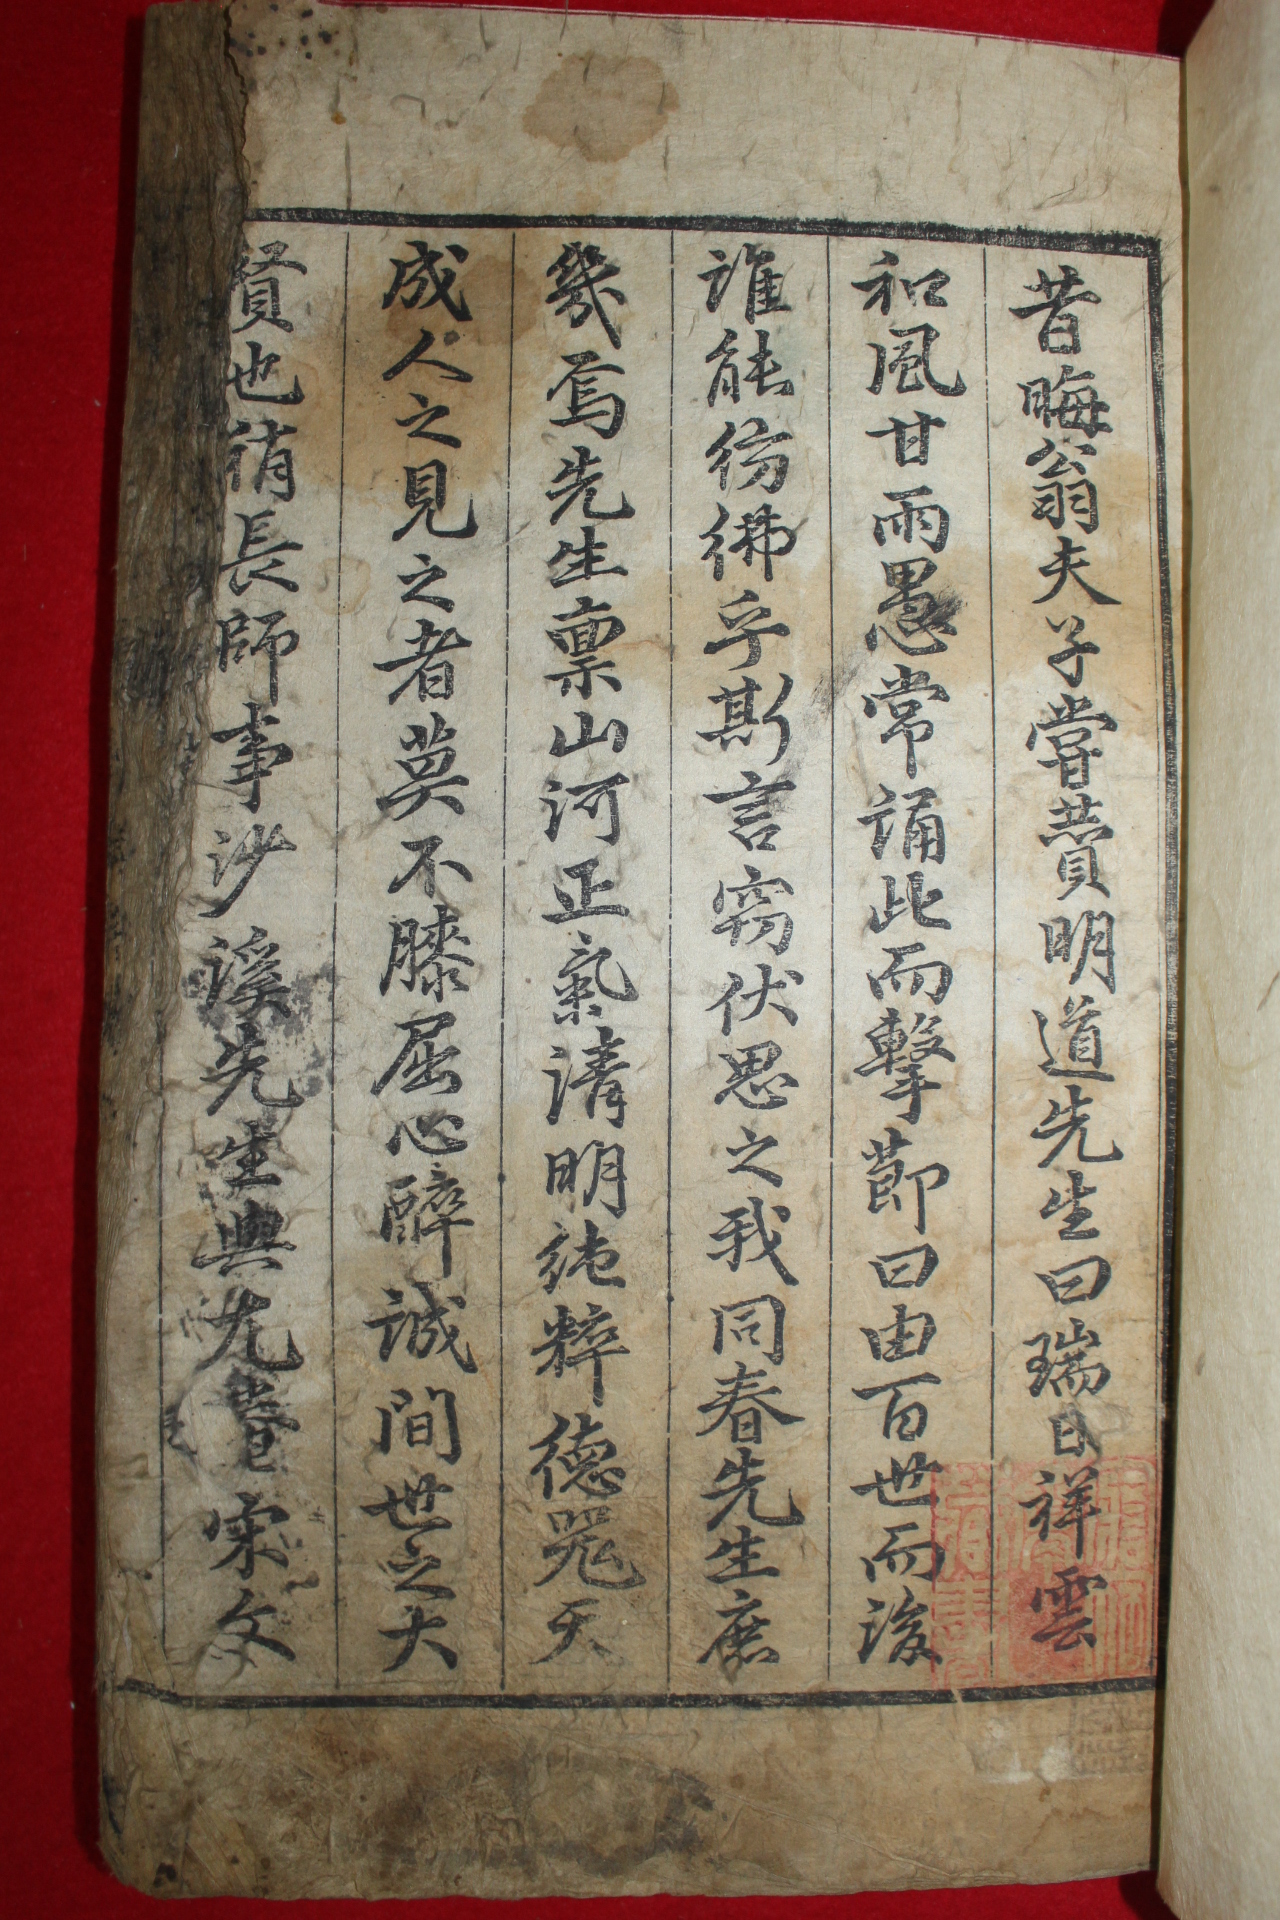 昔晦翁夫子嘗贊明道先生曰瑞日祥雲
和風甘雨愚常誦此而擊節曰由百世而後
誰能彷彿乎斯言窃伏思之我同春先生庶
幾焉先生禀山河正氣清明純粹德器天
成人之見之者莫不膝屈心醉誠間世之大
賢也稍長師事沙溪先生與尤菴宋文